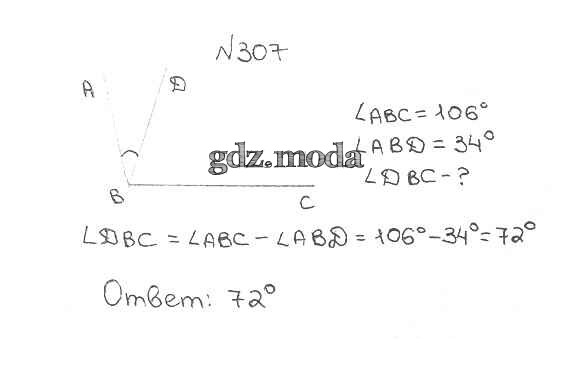 N307
A
D
∠ABC = 106°
∠ABD = 34°
gdz.moda
∠DBC - ?
B
C
∠DBC = ∠ABC - ∠ABD = 106° - 34° = 72°
Ответ: 72°